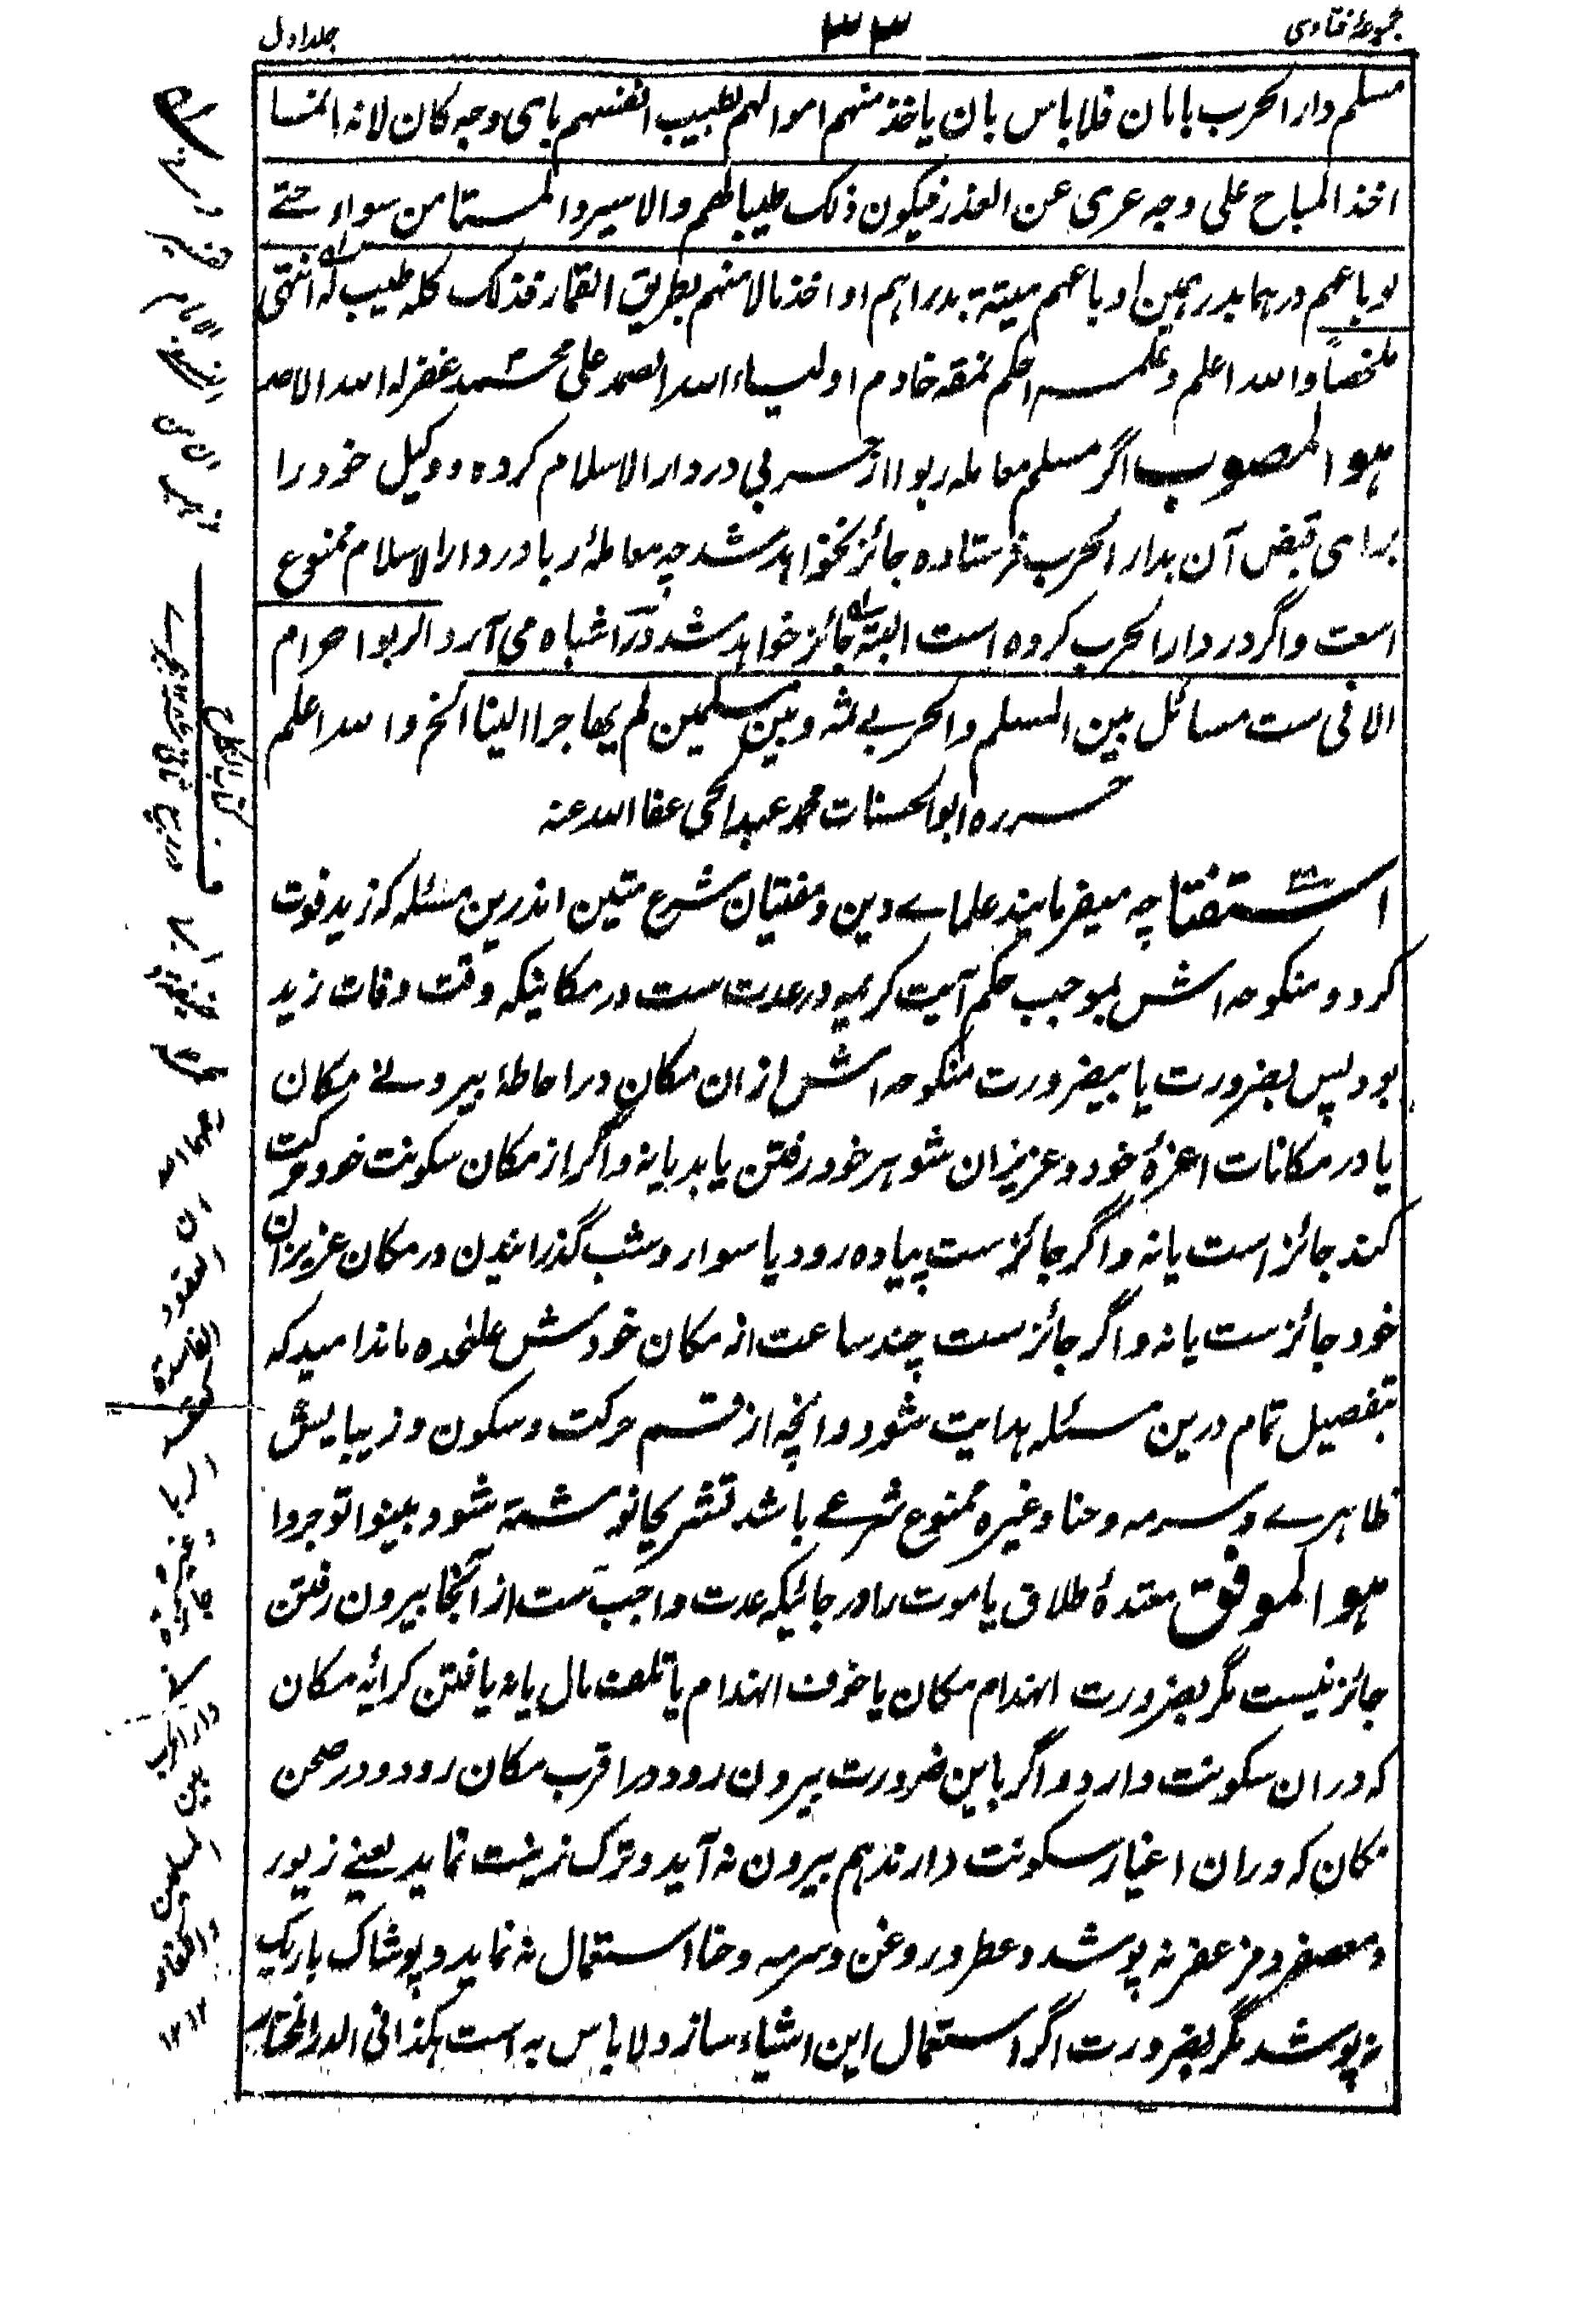 مجموعۂ فتاوی
۳۳
جلد اول
مسلم دار الحرب بامان فلا باس بان یاخذ منهم اموالهم بطیب انفسهم بای وجه کان لانه انما
اخذ المباح علی وجه عری عن الغدر فیکون ذلک طیبا لهم والاسیر والمستامن سواء حتے
لو باعهم درهما بدرهمین او باعهم میتة بدراهم او اخذ مالا منهم بطریق القمار فذلک کله طیب له انتهی
ملخصاً والله اعلم وعلمه احکم نمقه خادم اولیاء الله الصمد علی محمد غفر له الله الاحد
هو المصوب اگر مسلم معامله ربوا از حربی در دار الاسلام کرده و وکیل خود را
برای قبض آن بدار الحرب فرستاده جائز نخواهد شد چه معاملۂ ربا در دار الاسلام ممنوع
است واگر در دار الحرب کرده است البته جائز خواهد شد در اشباه می آرد الربوا حرام
الا فی ست مسائل بین المسلم والحربی ثمه وبین مسلمین لم یهاجرا الینا الخ والله اعلم
حرره ابو الحسنات محمد عبد الحی عفا الله عنه
استفتا چه میفرمایند علماے دین و مفتیان شرع متین اندرین مسئله که زید فوت
کرد و منکوحه اش بموجب حکم آیت کریمه در عدت ست در مکانیکه وقت وفات زید
بود پس بضرورت یا بیضرورت منکوحه اش از ان مکان در احاطۂ بیرونے مکان
یا در مکانات اعزۂ خود و عزیزان شوهر خود رفتن یابد یا نه واگر از مکان سکونت خود حرکت
کند جائز است یا نه واگر جائز ست پیاده رود یا سوار و شب گذرانیدن در مکان عزیزان
خود جائز ست یا نه واگر جائز ست چند ساعت از مکان خودش علحده ماند امید که
بتفصیل تمام درین مسئله هدایت شود وانچه از قسم حرکت وسکون و زیبایش
ظاهرے و سرمه و حنا وغیره ممنوع شرعے باشد تشریحا نوشته شود بینوا توجروا
هو الموفق معتدۂ طلاق یا موت را در جائیکه عدت واجب ست از آنجا بیرون رفتن
جائز نیست مگر بضرورت انهدام مکان یا خوف انهدام یا تلف مال یا نه یافتن کرائه مکان
که دران سکونت دارد واگر باین ضرورت بیرون رود در اقرب مکان رود و در صحن
مکان که دران اغیار سکونت دارند هم بیرون نه آید و ترک زینت نماید یعنے زیور
و معصفر و مزعفر نه پوشد و عطر و روغن و سرمه و حنا استعمال نه نماید و پوشاک باریک
نه پوشد مگر بضرورت اگر استعمال این اشیاء سازد لا باس به است هکذا فی الدر المختار
کتاب النکاح
ان
العقود
الفاسدة
الربا
وغیره
جائزة
فی
دار الحرب
بین المسلمین
۱۲ ۱۲